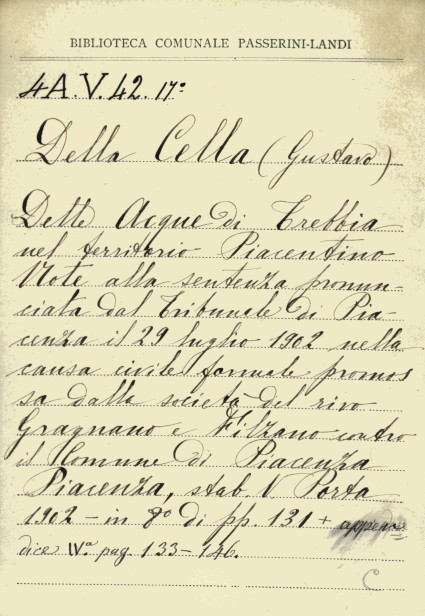 BIBLIOTECA COMUNALE PASSERINI-LANDI
4A.V.42.17º
Della Cella (Gustavo)
Delle Acque di Trebbia
nel territorio Piacentino
Note alla sentenza pronun-
ciata dal Tribunale di Pia-
cenza il 29 luglio 1902 nella
causa civile formale promos
sa dalla società del rivo
Gragnano e Filzano contro
il Comune di Piacenza
Piacenza, stab. V Porta
1902 - in 8º di pp. 131 + appen=
dice pag. 133-146.
C